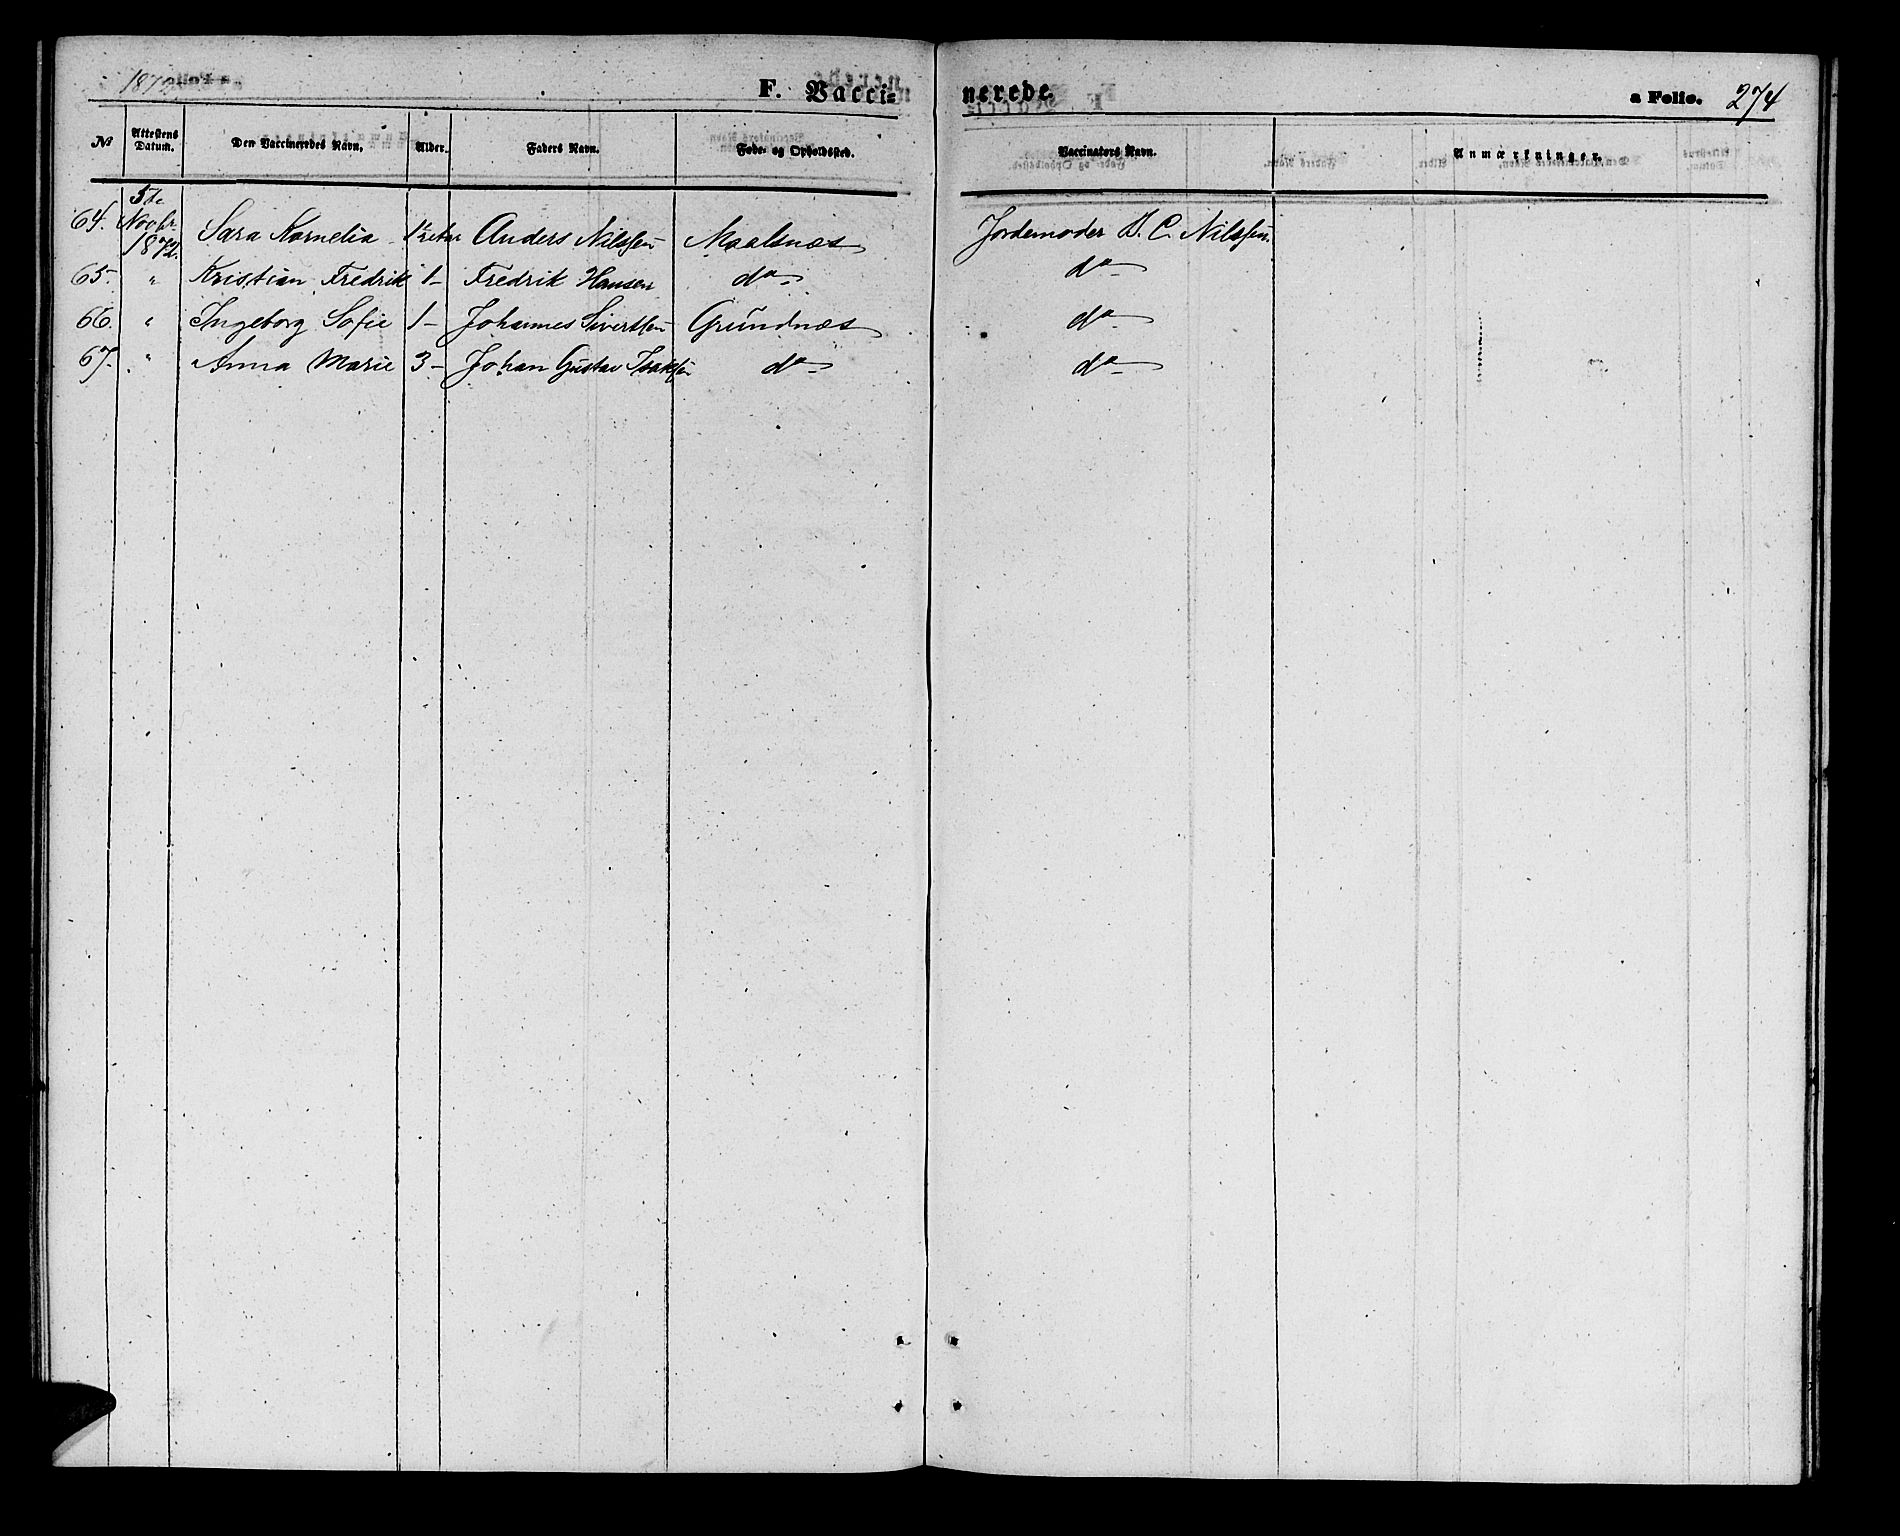 1872 F. Vacci= nerede. a Folio. 274
№ Attestens Datum. Den Vaccineredes Navn. Alder. Faders Navn. Føde- og Opholdssted. Vaccinators Navn. Anmærkninger.
64. 5te Novbr 1872. Sara Kornelia Anders Nilssen Maalsnæs Jordemoder B. C. Nilssen
65 " Kristian Fredrik 1 – Fredrik Hansen do – do –
66. " Ingeborg Sofie 1 – Johannes Sivertsen Grundnæs do –
67. " Anna Marie 3 – Johan Gustav Isaksen do – do –